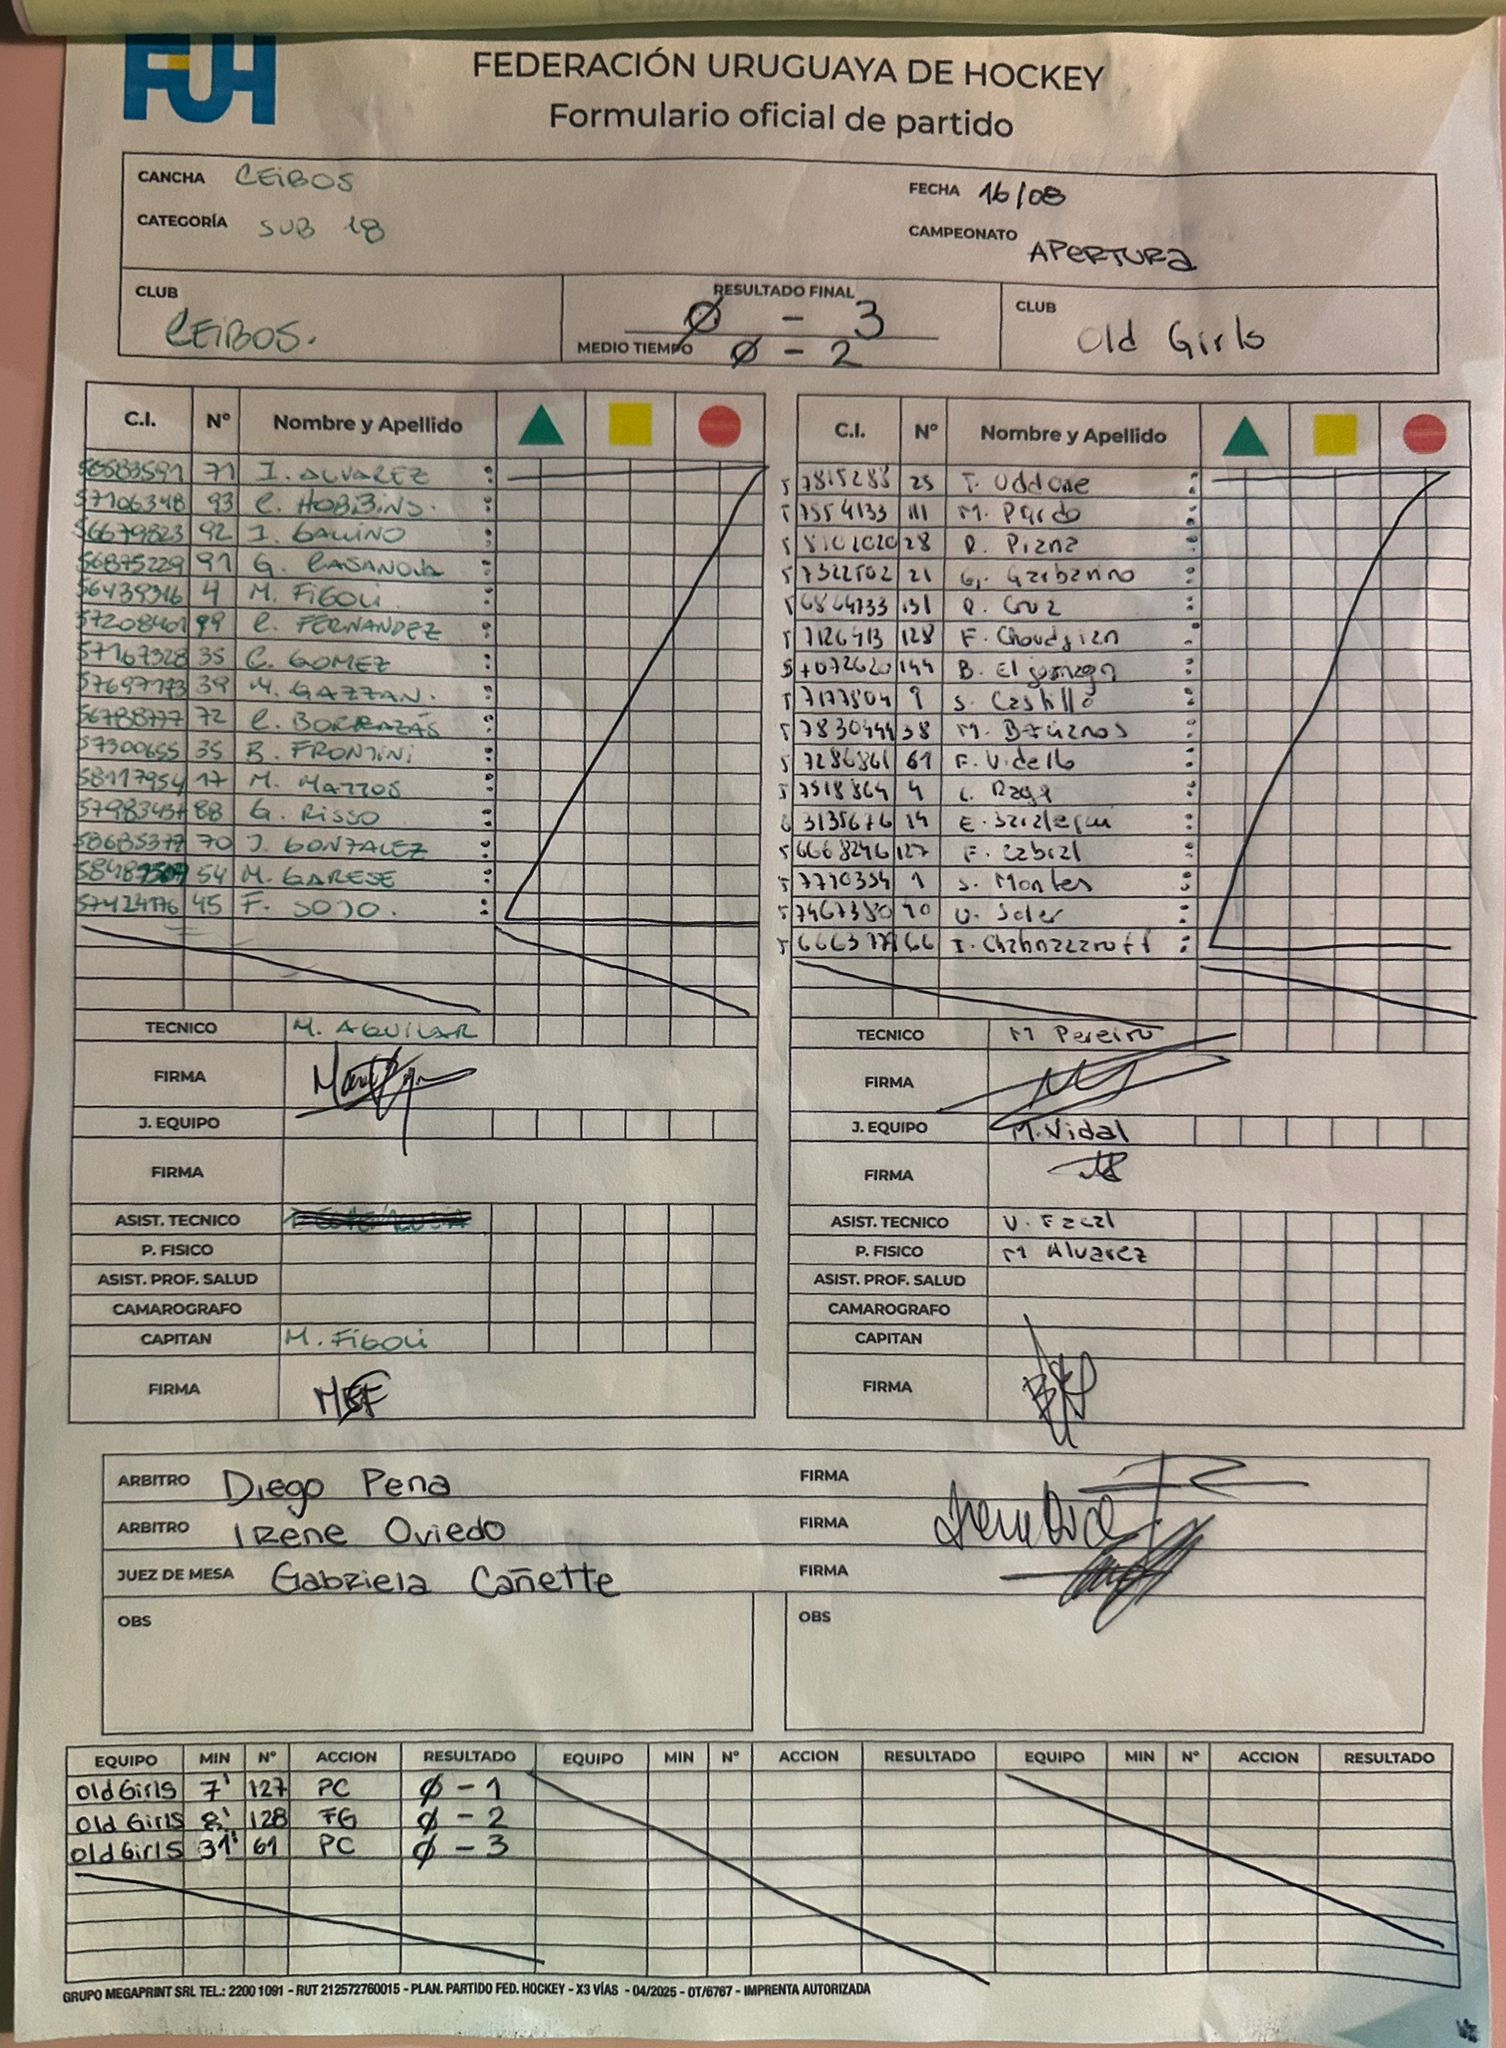 FUH
FEDERACIÓN URUGUAYA DE HOCKEY
Formulario oficial de partido
CANCHA CEIBOS
FECHA 16/08
CATEGORÍA SUB 18
CAMPEONATO APERTURA
CLUB CEIBOS.
RESULTADO FINAL 0 - 3
MEDIO TIEMPO 0 - 2
CLUB Old Girls
C.I. Nº Nombre y Apellido
56583591 71 I. ALVAREZ
57106348 93 C. HOBBINS.
56679823 92 I. GALLINO
56875229 91 G. CASANOVA
56439316 4 M. FIGOLI
57208401 99 C. FERNANDEZ
57167328 35 C. GOMEZ
57697173 39 M. GAZZAN.
56788777 72 C. BORRAZÁS
57300655 35 B. FRONTINI
58117954 17 M. MATTOS
57983437 88 G. RISSO
58685377 70 J. GONZALEZ
54 M. GARESE
57424176 45 F. SOTO.
TECNICO M. AGUILAR
FIRMA
J. EQUIPO
FIRMA
ASIST. TECNICO
P. FISICO
ASIST. PROF. SALUD
CAMAROGRAFO
CAPITAN M. FIGOLI
FIRMA MFF
C.I. Nº Nombre y Apellido
5 7815288 25 T. Uddone
5 7554133 111 M. Pardo
5 8102020 28 P. Piana
5 7322502 21 G. Garbarino
5 6864733 131 Cruz
5 7126413 128 F. Choudjian
5 7072620 144 B.
5 7177804 9 S. Castillo
5 7830444 38 M.
5 7286861 61 F. Vidello
5 7518864 4 C. Raga
6 3135676 14 E.
5 6668246 127 F. Cabral
5 7770354 1 S. Montes
5 7467380 10 V. Soler
5 6663777 66 I. Chahnazaroff
TECNICO M Pereiro
FIRMA
J. EQUIPO M. Vidal
FIRMA
ASIST. TECNICO V. Facal
P. FISICO M Alvarez
ASIST. PROF. SALUD
CAMAROGRAFO
CAPITAN
FIRMA
ARBITRO Diego Pena FIRMA
ARBITRO IRene Oviedo FIRMA
JUEZ DE MESA Gabriela Cañette FIRMA
OBS
OBS
EQUIPO MIN Nº ACCION RESULTADO EQUIPO MIN Nº ACCION RESULTADO EQUIPO MIN Nº ACCION RESULTADO
Old Girls 7' 127 PC 0 - 1
Old Girls 8' 128 FG 0 - 2
Old Girls 31' 61 PC 0 - 3
GRUPO MEGAPRINT SRL TEL.: 2200 1091 - RUT 212572760015 - PLAN. PARTIDO FED. HOCKEY - X3 VÍAS - 04/2025 - OT/6767 - IMPRENTA AUTORIZADA